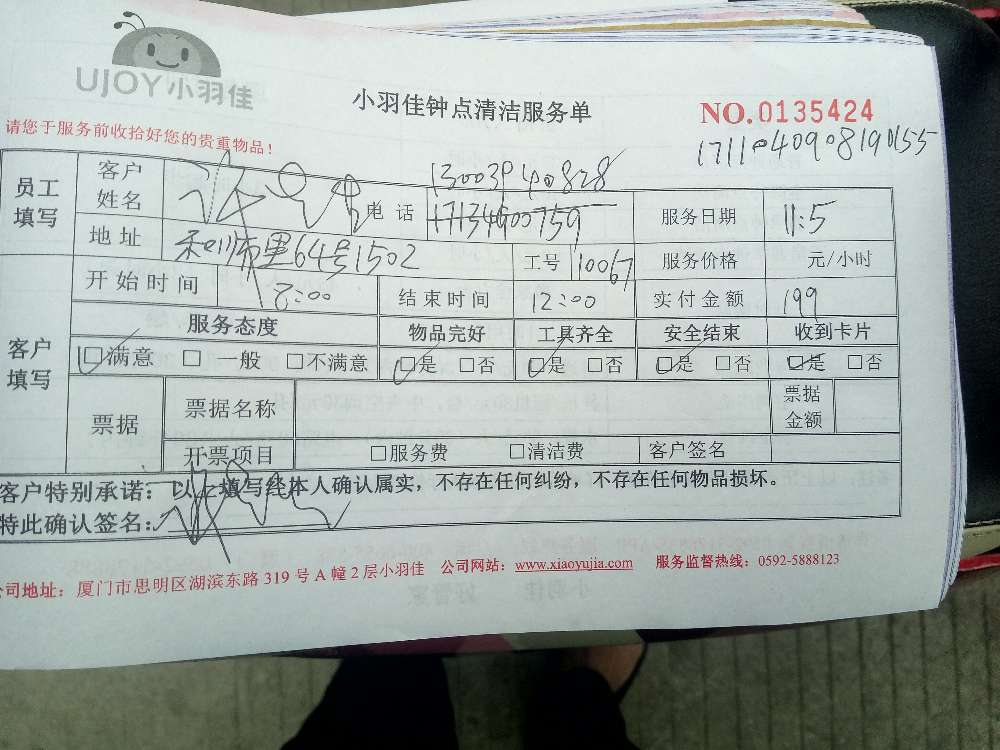 UJOY小羽佳
小羽佳钟点清洁服务单
NO.0135424
请您于服务前收拾好您的贵重物品！
员工填写
客户姓名
电话
13003940828
服务日期
11:5
地址
64号1502
工号
10067
服务价格
元/小时
客户填写
开始时间
8:00
结束时间
12:00
实付金额
199
服务态度
物品完好
工具齐全
安全结束
收到卡片
□满意 □一般 □不满意
□是 □否
□是 □否
□是 □否
□是 □否
票据
票据名称
票据金额
开票项目
□服务费 □清洁费
客户签名
客户特别承诺：以上填写经本人确认属实，不存在任何纠纷，不存在任何物品损坏。
特此确认签名：
公司地址：厦门市思明区湖滨东路 319 号 A 幢 2 层小羽佳 公司网站：www.xiaoyujia.com 服务监督热线：0592-5888123